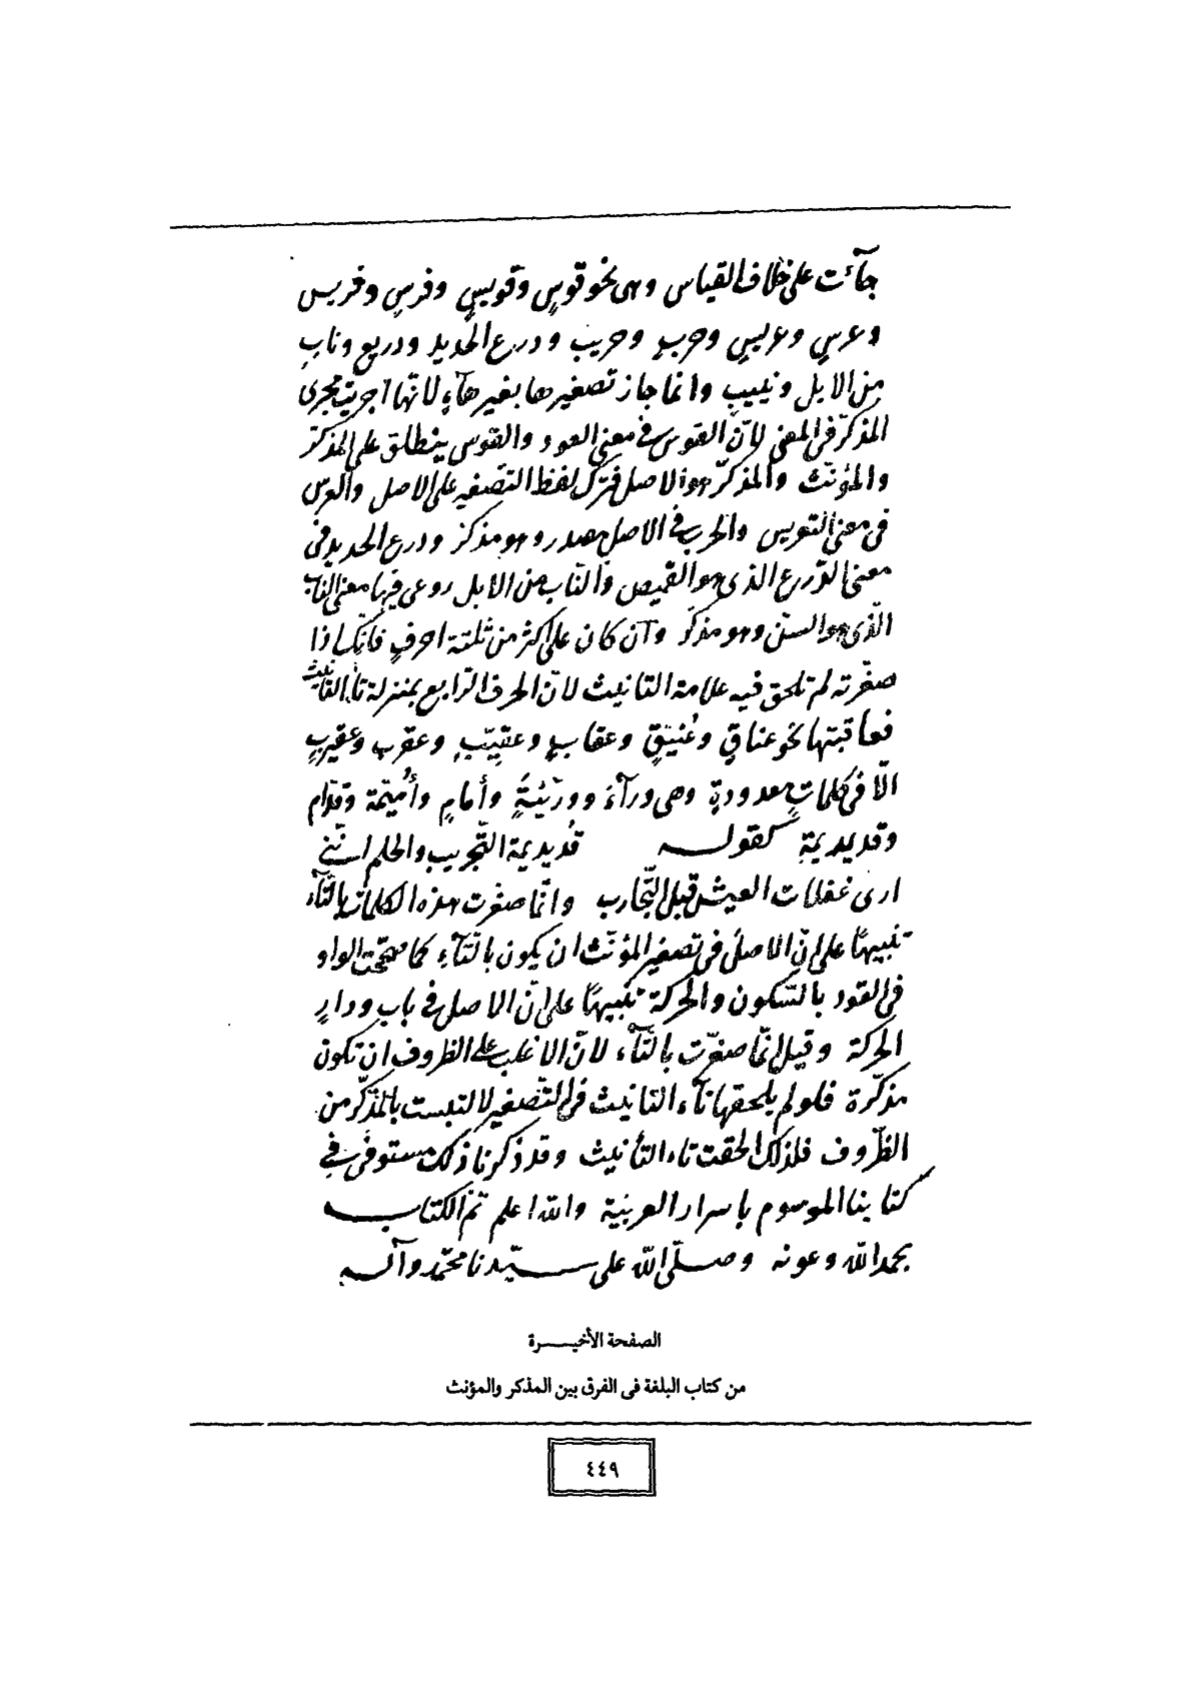 جآءت على خلاف القياس وهى نحو قوسٍ وقويسٍ وفرسٍ وفريس
وعرسٍ وعريسٍ وحربٍ وحريب ودرع الحديد ودريع وناب
من الابل ونييب وانما جاز تصغيرها بغير هآءٍ لانّها اجريت مجرى
المذكّر فى المعنى لانّ القوس فى معنى العود والقوس ينطلق على المذكر
والمؤنّث والمذكّر هو الاصل فترك لفظ التصغير على الاصل والعرس
فى معنى التعريس والحرب فى الاصل مصدر وهو مذكر ودرع الحديد فى
معنى الدّرع الذى هو القميص والنّاب من الابل روعى فيها معنى الناب
الذّى هو السنّ وهو مذكر وان كان على اكثر من ثلثة احرفٍ فانّك اذا
صغّرته لم تلحق فيه علامة التانيث لانّ الحرف الرّابع بمنزلة تاء التانيث
فعاقبتها نحو عناقٍ وعُنيّقٍ وعقابٍ وعقيّبٍ وعقرب وعقيربٍ
الّا فى كلماتٍ معدودةٍ وهى ورآءَ وورَيّئةٌ وأمامٍ وأُميّمة وقدّام
وقديديمةٍ كقولـــه قُديديمة التّجريب والحلم انّنى
ارى غفلات العيش قبل التّجارب وانّما صغّرت هذه الكلمات بالتّآء
تنبيهًا على انّ الاصل فى تصغير المؤنّث ان يكون بالتّآءِ كما صحّحت الواو
فى القود بالسّكون والحركة تنبيهًا على انّ الاصل فى باب ودارٍ
الحركة وقيل انّما صغّرت بالتّآء لانّ الاغلب على الظروف ان تكون
مذكّرة فلو لم يلحقها تآء التانيث فى التّصغير لالتبست بالمذكّر من
الظّروف فلذلك الحقت تاء التأنيث وقد ذكرنا ذلك مستوفى فى
كتابنا الموسوم باسرار العربيّة والله اعلم تمّ الكتاب
بحمد الله وعونه وصلّى الله على سيّدنا محمّد وآلـــه
الصفحة الأخيـــرة
من كتاب البلغة فى الفرق بين المذكر والمؤنث
٤٤٩